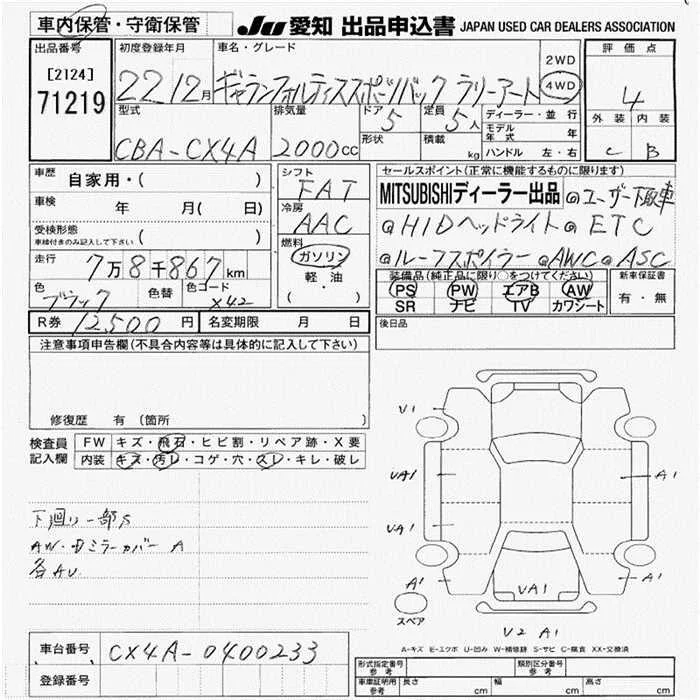 車内保管・守衛保管
JU 愛知 出品申込書 JAPAN USED CAR DEALERS ASSOCIATION
出品番号
[2124]
71219
初度登録年月
22 12月
車名・グレード
ギャランフォルティススポーツバック ラリーアート
2WD
4WD
評価点
4
外装 内装
C B
型式
CBA-CX4A
排気量
2000cc
ドア 5
形状
定員 5人
積載 kg
ディーラー・並行
モデル年式 年
ハンドル 左・右
車歴 自家用・( )
車検 年 月( 日)
受検形態
車検付きのみ記入して下さい ( )
走行 7万8千867km
色 ブラック
色替
色コード X42
シフト FAT
冷房 AAC
燃料
ガソリン
軽・油
( ・ )
セールスポイント(正常に機能するものに限ります)
MITSUBISHIディーラー出品 @ユーザー下取車
@HIDヘッドライト @ETC
@ルーフスポイラー @AWC @ASC
装備品(純正品に限り○をつけてください)
PS PW エアB AW
SR ナビ TV カワシート
新車保証書
有・無
R券 12,500円
名変期限 月 日
後日品
注意事項申告欄(不具合内容等は具体的に記入して下さい)
修復歴 有(箇所 )
検査員記入欄
FW キズ・飛石・ヒビ割・リペア跡・X要
内装 キズ・汚レ・コゲ・穴・スレ・キレ・破レ
下廻り一部S
AW・Dミラーカバー A
各AU
V1
UA1
UA1
A1
A1
A1
UA1
スペア
V2 A1
A-キズ E-エクボ U-凹み W-補修跡 S-サビ C-腐食 XX-交換済
車台番号 CX4A-0400233
登録番号
形式指定番号 参考
類別区分番号 参考
車庫証明用 参考
長さ cm
幅 cm
高さ cm